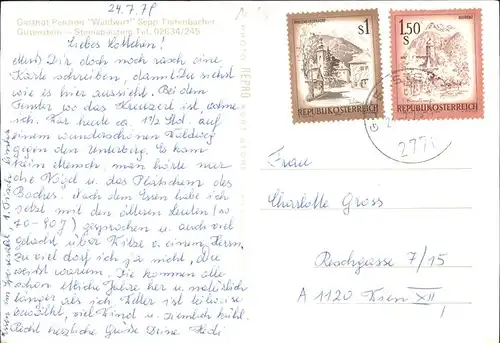 24.7.78
Gasthof Pension "Waldwirt" Sepp Tiefenbacher
Gutenstein - Steinapiesting Tel. 02634/245
Liebes Lottchen!
Muß Dir doch noch rasch eine
Karte schreiben, damit Du siehst
wie es hier aussieht. Bei dem
Fenster wo das Kreuzerl ist, wohne
ich. War heute ca. 1½ Std. auf
einem wunderschönen Waldweg
gegen den Unterberg. Es kam
kein Mensch, man hörte nur
die Vögel u. das Plätschern des
Baches. Nach dem Essen habe ich
jetzt mit den älteren Leuten (so
70-80J) gesprochen u. auch viel
gelacht über Witze v. einem Herrn,
zu viel darf ich ja nicht, Du
weißt warum. Die kommen alle
schon etliche Jahre her u. natürlich
länger als ich. Wetter ist teilweise
bewölkt, viel Wind u. ziemlich kühl.
Recht herzliche Grüße Deine Hedi
S1
REPUBLIK ÖSTERREICH
1.50
S
REPUBLIK ÖSTERREICH
277
Frau
Charlotte Gross
Reschgasse 7/15
A 1120 Wien XII